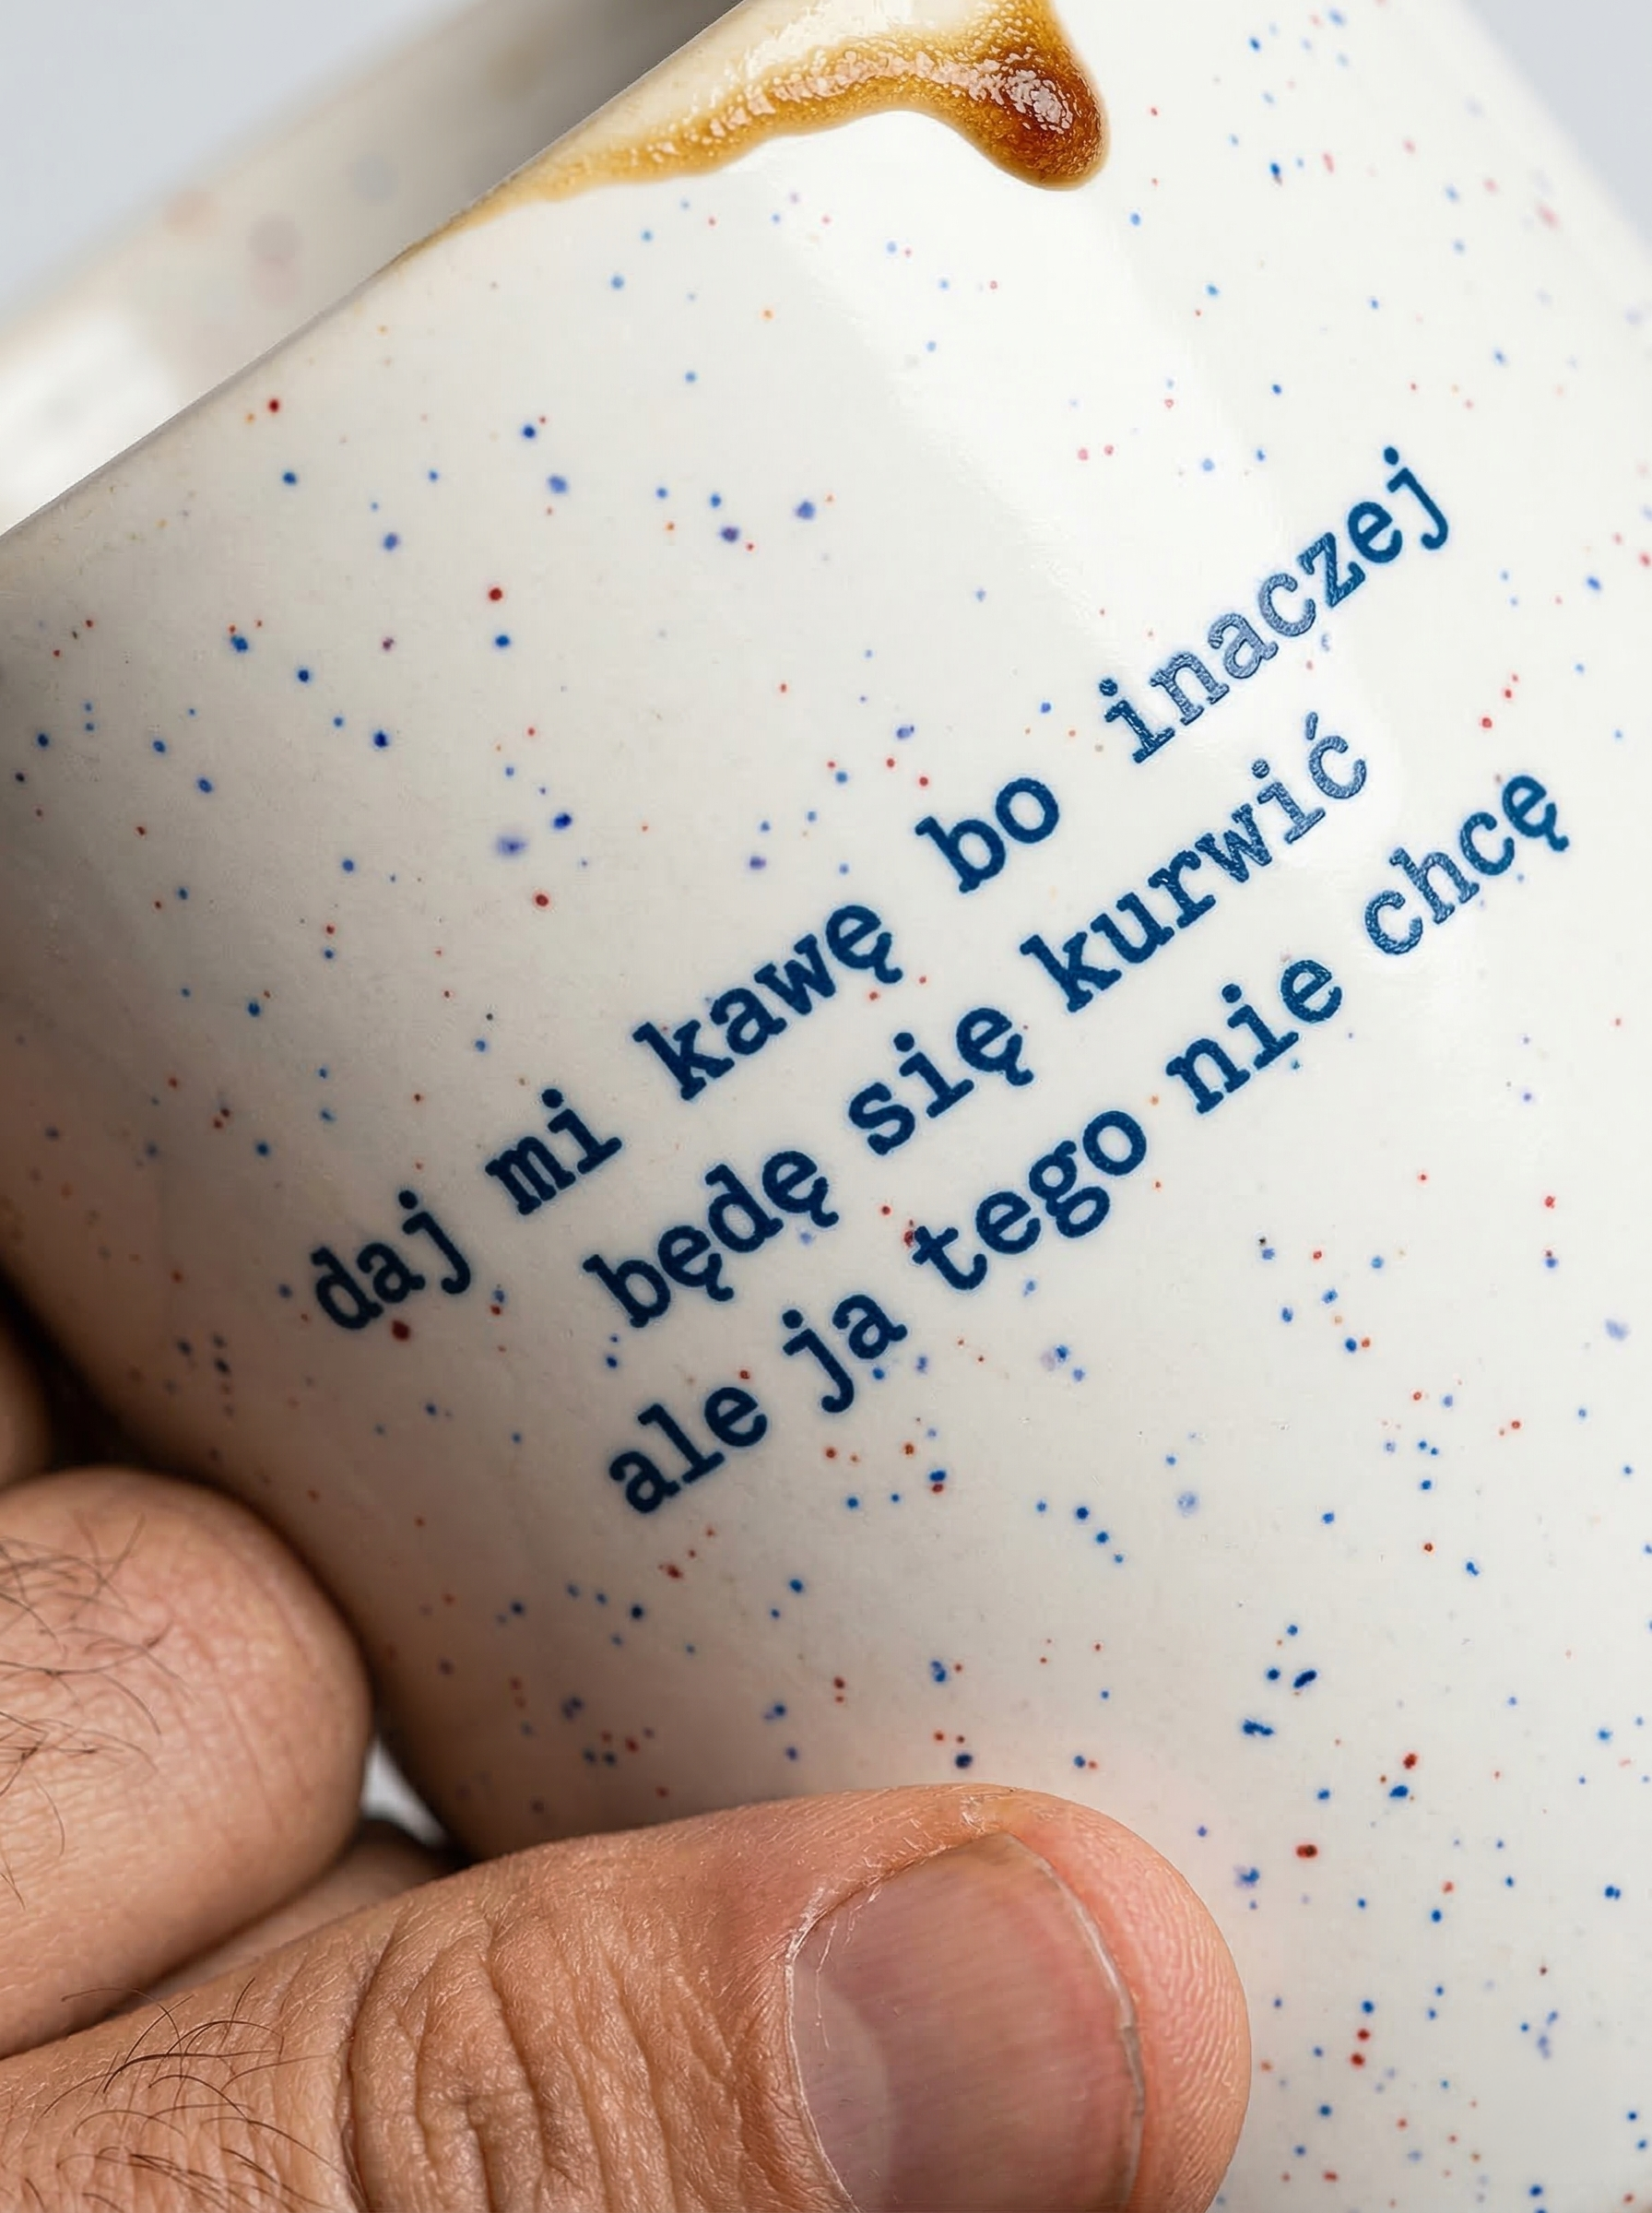 daj mi kawę bo inaczej
będę się kurwić
ale ja tego nie chcę